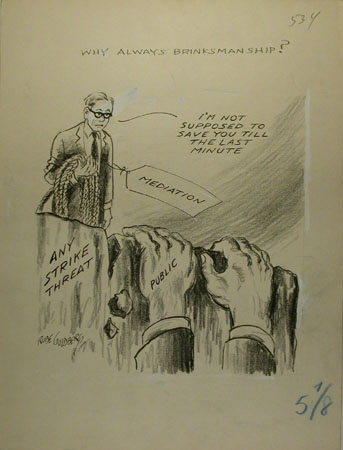 534
WHY ALWAYS BRINKSMANSHIP?
I'M NOT
SUPPOSED TO
SAVE YOU TILL
THE LAST
MINUTE
MEDIATION
ANY
STRIKE
THREAT
PUBLIC
RUBE GOLDBERG
5/8